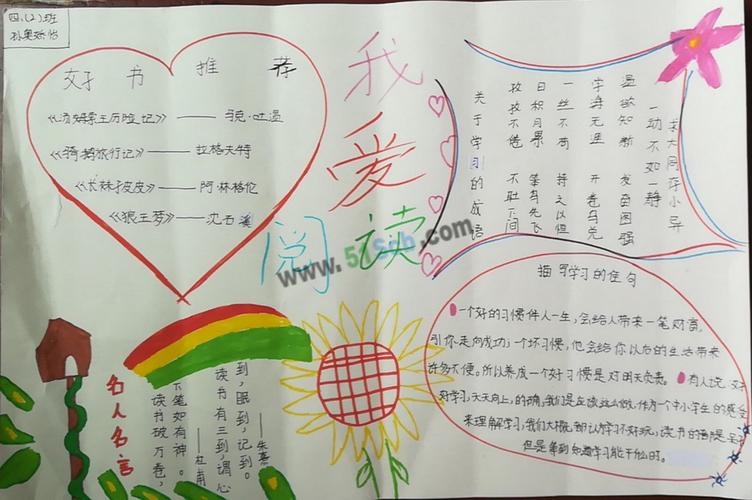 四、(2)班
好书推荐
《汤姆索亚历险记》——马克·吐温
《骑鹅旅行记》——拉格夫特
《长袜子皮皮》——阿·林格伦
《狼王梦》——沈石溪
我爱阅读
www.51sxb.com
求大同存小异
一动不如一静
温故知新 发奋图强
学海无涯 开卷有益
一丝不苟 持之以恒
日积月累 笨鸟先飞
孜孜不倦 不耻下问
关于学习的成语
描写学习的佳句
一个好的习惯伴人一生,会给人带来一笔财富,
引你走向成功;一个坏习惯,他会给你以后的生活带来
许多不便。所以养成一个好习惯是对明天负责。有人说:好
好学习,天天向上。的确,我们是在读这么做。作为一个中小学生的感受
来理解学习,我们大概都认为学习不好玩,读书的
但是拿到知识学习能干什么时。
名人名言
到,眼到,记到。
读书有三到,谓心
——朱熹
下笔如有神。
读书破万卷,
——杜甫